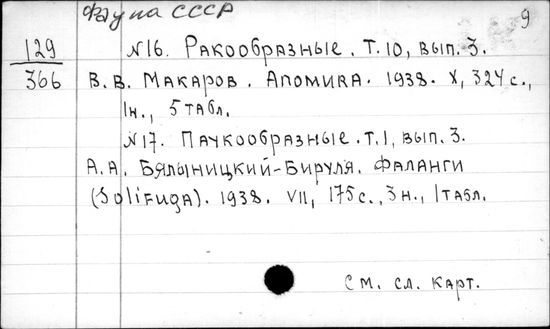 Фауна СССР
9
129 №16. Ракообразные. Т.10, вып. 3.
366 В. В. Макаров. Апомиkа. 1938. X, 324 с.,
1н., 5 табл.
№17. Паукообразные. Т.1, вып. 3.
А. А. Бялыницкий-Бируля. Фаланги
(Solifuga). 1938. VII, 175 с., 3н., 1 табл.
см. сл. карт.